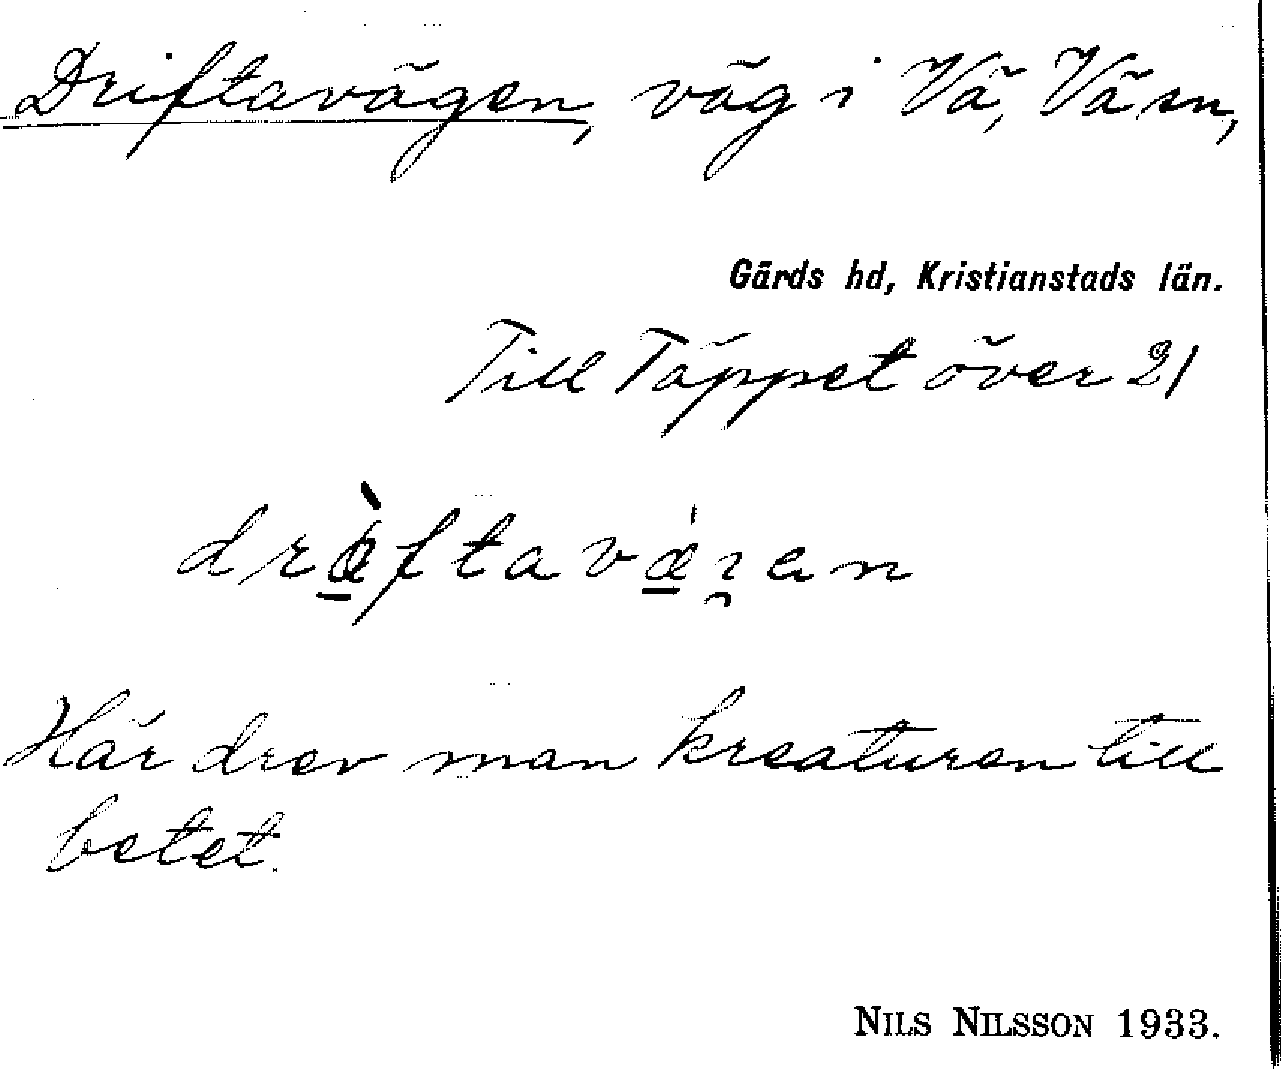 Driftavägen, väg i Vä, Vä sn,
Gärds hd, Kristianstads län.
Till Täppet över 21
dræ̠̀ftavæ̠̍ɿ̯en
Här drev man kreaturen till
betet.
NILS NILSSON 1933.